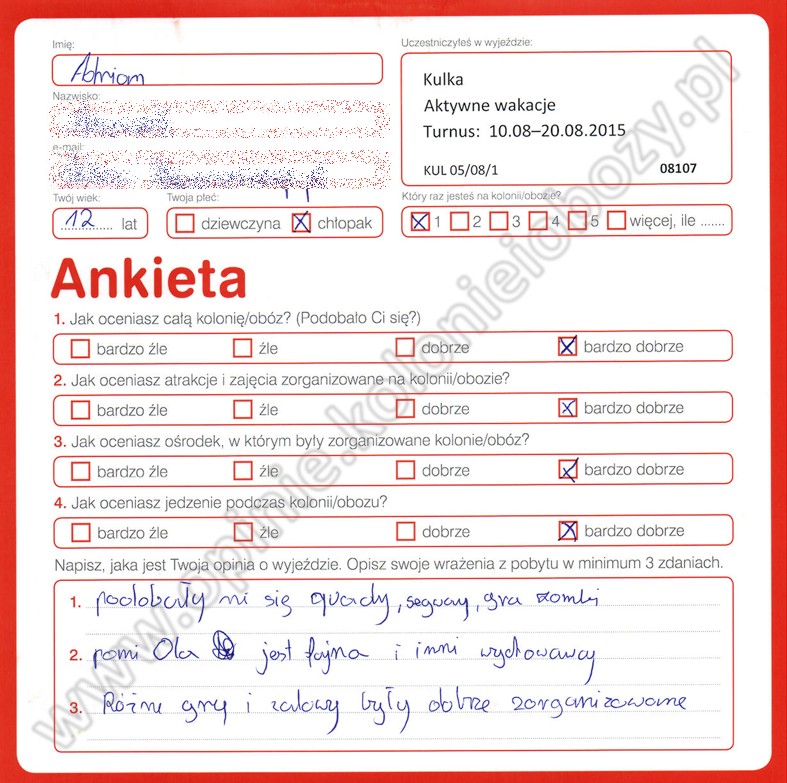 Imię:
Adrian
Uczestniczyłeś w wyjeździe:
Kulka
Aktywne wakacje
Turnus: 10.08–20.08.2015
KUL 05/08/1 08107
Nazwisko:
e-mail:
Twój wiek:
12 lat
Twoja płeć:
dziewczyna X chłopak
Który raz jesteś na kolonii/obozie?
X 1 2 3 4 5 więcej, ile .......
Ankieta
1. Jak oceniasz całą kolonię/obóz? (Podobało Ci się?)
bardzo źle źle dobrze X bardzo dobrze
2. Jak oceniasz atrakcje i zajęcia zorganizowane na kolonii/obozie?
bardzo źle źle dobrze X bardzo dobrze
3. Jak oceniasz ośrodek, w którym były zorganizowane kolonie/obóz?
bardzo źle źle dobrze X bardzo dobrze
4. Jak oceniasz jedzenie podczas kolonii/obozu?
bardzo źle źle dobrze X bardzo dobrze
Napisz, jaka jest Twoja opinia o wyjeździe. Opisz swoje wrażenia z pobytu w minimum 3 zdaniach.
1. podobały mi się quady, segway, gra zombi
2. pani Ola jest fajna i inni wychowawcy
3. Różne gry i zabawy były dobrze zorganizowane
www.opinie.kolonieiobozy.pl